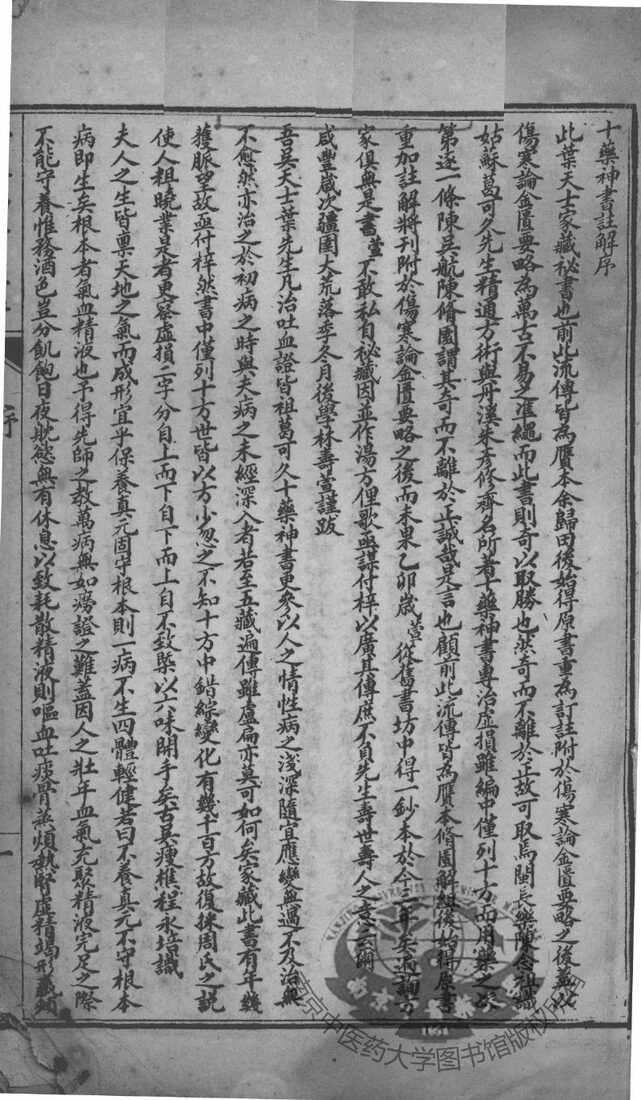 十藥神書註解序
此葉天士家藏秘書也前此流傳皆為贗本余歸田後始得原書重為訂註附於傷寒論金匱要略之後蓋以
傷寒論金匱要略為萬古不易之准繩而此書則奇以取勝也然奇而不離於正故可取焉閩長樂陳念祖識
姑蘇葛可久先生精通方術與丹溪朱彥修齊名所著十藥神書專治虛損雖編中僅列十方而用藥之次
第逐一條陳吳航陳脩園謂其奇而不離於正誠哉是言也顧前此流傳皆為贗本脩園解組後始得原書
重加註解將刊附於傷寒論金匱要略之後而未果乙卯歲萱從舊書坊中得一鈔本於今三年矣遍詢方
家俱無是書萱不敢私自秘藏因並作湯方俚歌亟謀付梓以廣其傳庶不負先生壽世壽人之意云爾
咸豐歲次彊圉大荒落季冬月後學林壽萱謹跋
吾吳天士葉先生凡治吐血證皆祖葛可久十藥神書更參以人之情性病之淺深隨宜應變無過不及治無
不愈然亦治之於初病之時與夫病之未經深入者若至五藏遍傳雖盧扁亦莫可如何矣家藏此書有年幾
獲脈望故亟付梓然書中僅列十方世皆以方少忽之不知十方中錯綜變化有幾千百方故復採周氏之說
使人粗曉業是者更察虛損二字分自上而下自下而上自不致槩以六味開手矣古吳瘦樵程永培識
夫人之生皆禀天地之氣而成形宜乎保養真元固守根本則一病不生四體輕健若曰不養真元不守根本
病即生矣根本者氣血精液也予得先師之教萬病無如癆證之難蓋因人之壯年血氣充聚精液完足之際
不能守養惟務酒色豈分飢飽日夜耽慾無有休息以致耗散精液則嘔血吐痰骨蒸煩熱腎虛精竭形羸頰
序
南京中医药大学图书馆版权所有